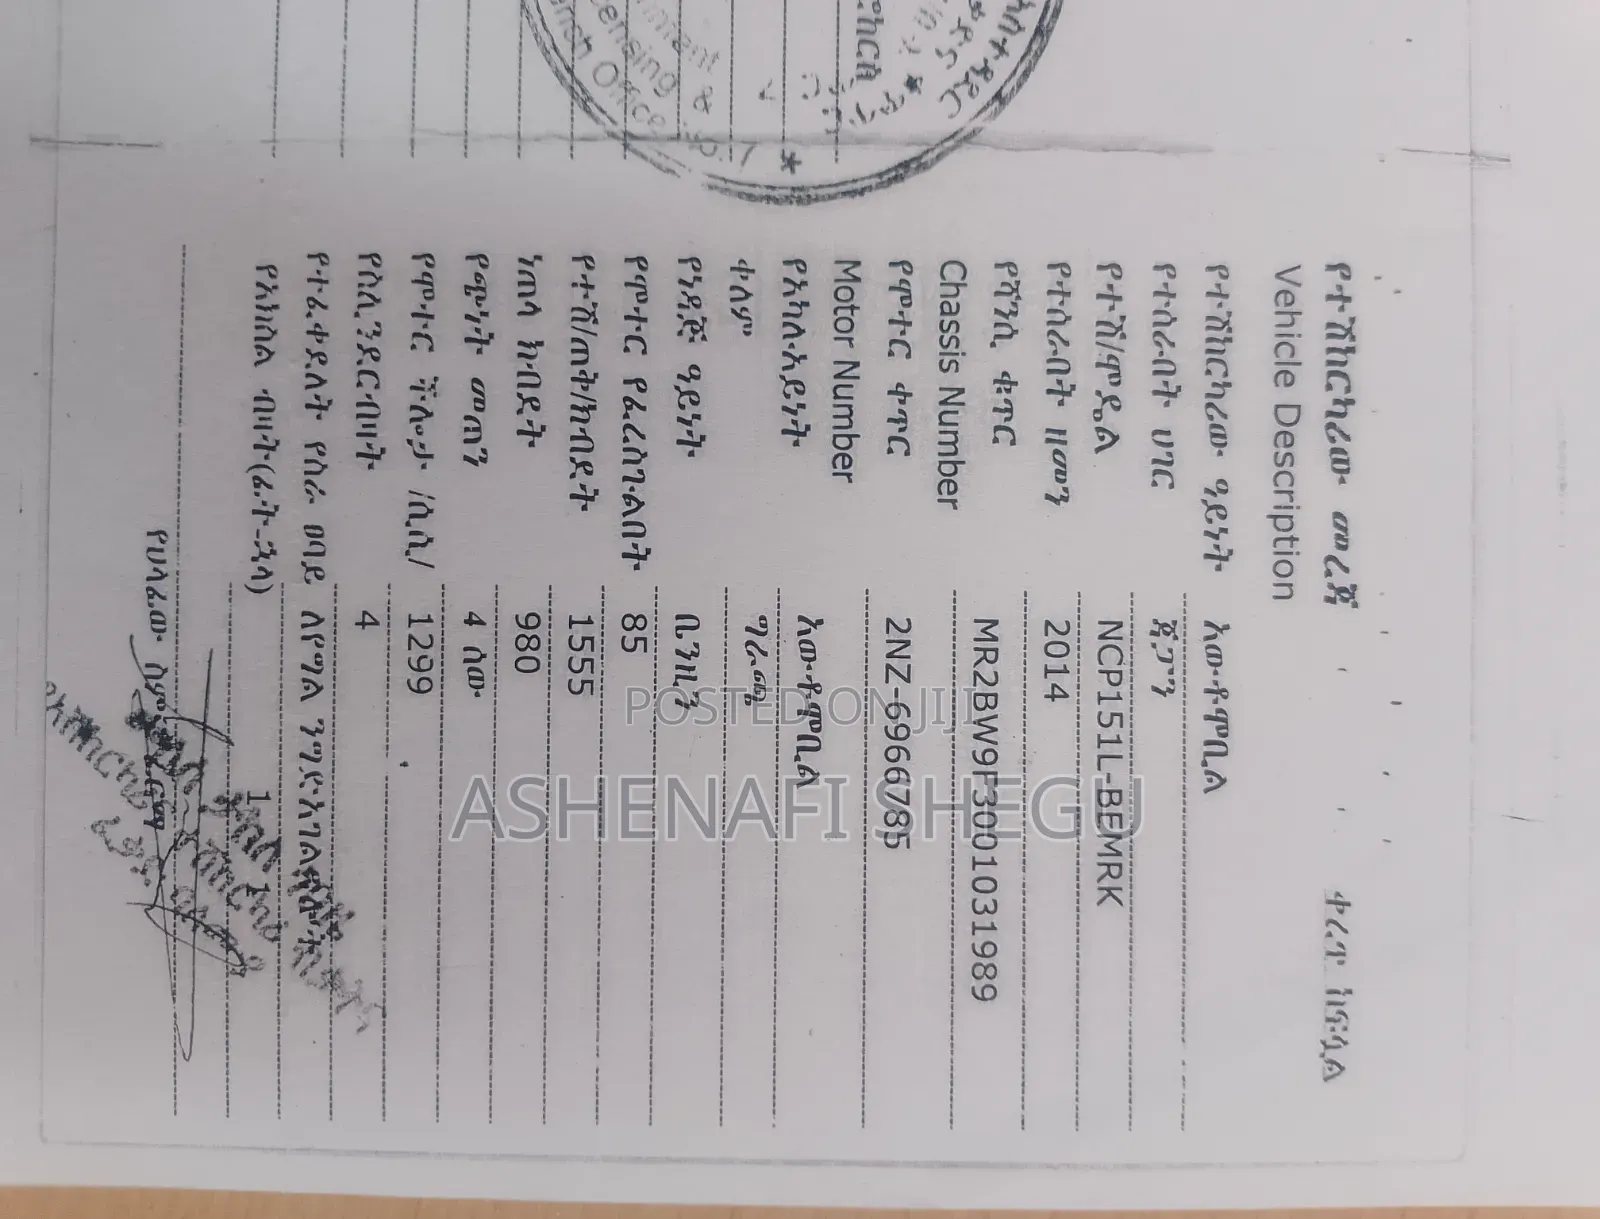 የተሽከርካሪው መረጃ ቀረጥ ከፍሏል
Vehicle Description
የተሽከርካሪው ዓይነት አውቶሞቢል
የተሰራበት ሀገር ጃፓን
የተሽ/ሞዴል NCP151L-BEMRK
የተሰራበት ዘመን 2014
የሻንሲ ቁጥር
Chassis Number MR2BW9F3001031989
የሞተር ቀጥር 2NZ-6966785
Motor Number
የአካሉ አይነት አውቶሞቢል
ቀለም ግራጫ
የነዳጅ ዓይነት ቤንዚን
የሞተር የፈረስጉልበት 85
የተሽ/ጠቅ/ክብደት 1555
ነጠላ ክብደት 980
የጭነት መጠን 4 ሰው
የሞተር ችሎታ /ሲሲ/ 1299
የሲሊንደር ብዛት 4
የተፈቀደለት የስራ ፀባይ ለየግል ንግድ አገልግሎት
የአክስል ብዛት(ፊት-ኋላ) 1 1
የሀላፊው ስም
POSTED ON JIJI
ASHENAFI SHEGU